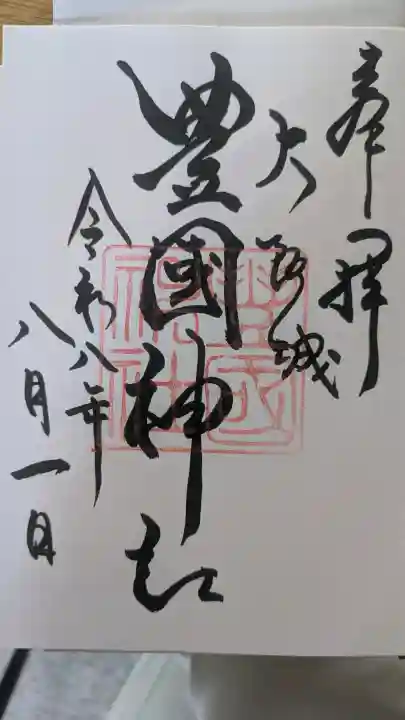 奉拝
大阪城
豊國神社
令和八年
八月一日
豊國神社